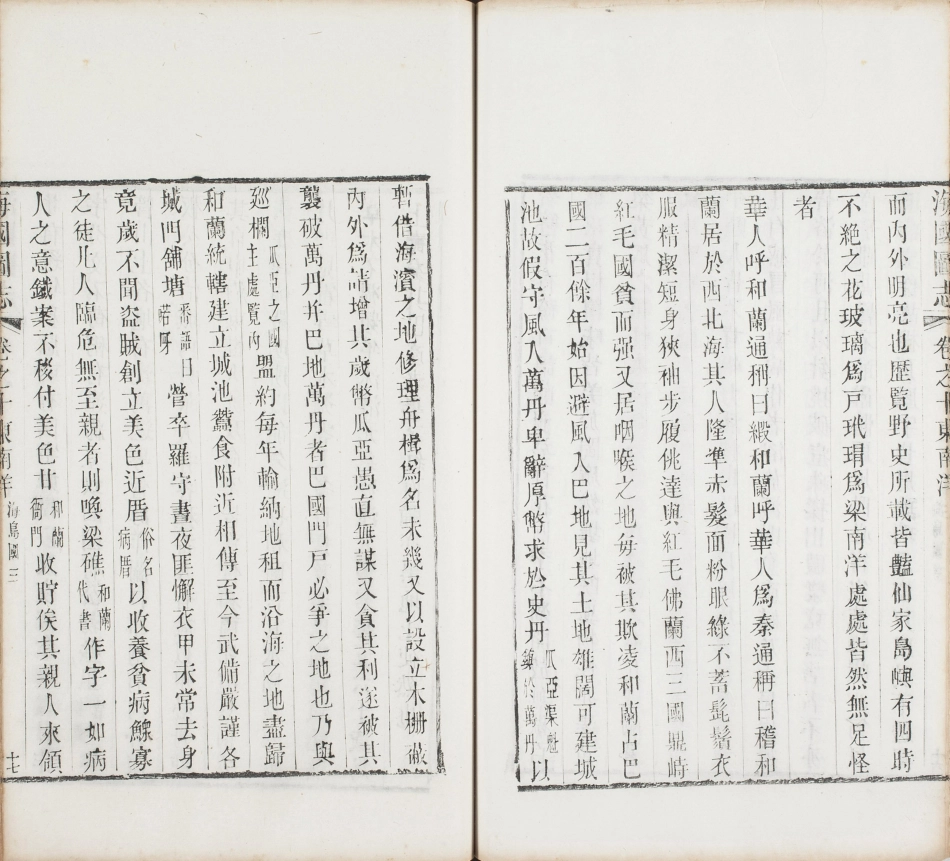 海國圖志 卷之十 東南洋
而內外明亮也歷覽野史所載皆豔仙家島嶼有四時
不絕之花玻璃爲戸玳瑁爲梁南洋處處皆然無足怪
者
華人呼和蘭通稱曰緞和蘭呼華人爲秦通稱曰稽和
蘭居於西北海其人隆準赤髮面粉眼綠不蓄髭鬚衣
服精潔短身狹袖步履佻達與紅毛佛蘭西三國鼎峙
紅毛國貧而强又居咽喉之地每被其欺凌和蘭占巴
國二百餘年始因避風入巴地見其土地雄闊可建城
池故假守風入萬丹卑辭厚幣求於史丹瓜亞渠魁鎮於萬丹以
暫借海濱之地修理舟楫爲名未幾又以設立木柵蔽
內外爲請增其歲幣瓜亞愚直無謀又貪其利遂被其
襲破萬丹并巴地萬丹者巴國門戸必爭之地也乃與
廵欄瓜亞之國主處覽內盟約每年輸納地租而沿海之地盡歸
和蘭統轄建立城池蠶食附近相傳至今武備嚴謹各
城門舖塘番語曰若牙營卒羅守晝夜匪懈衣甲未常去身
竟歲不聞盜賊創立美色近厝俗名病厝以收養貧病鰥寡
之徒凡人臨危無至親者則喚梁礁和蘭代書作字一如病
人之意鐵案不移付美色甘和蘭衙門收貯俟其親人來領
海國圖志 卷之十 東南洋 海島國三 十七